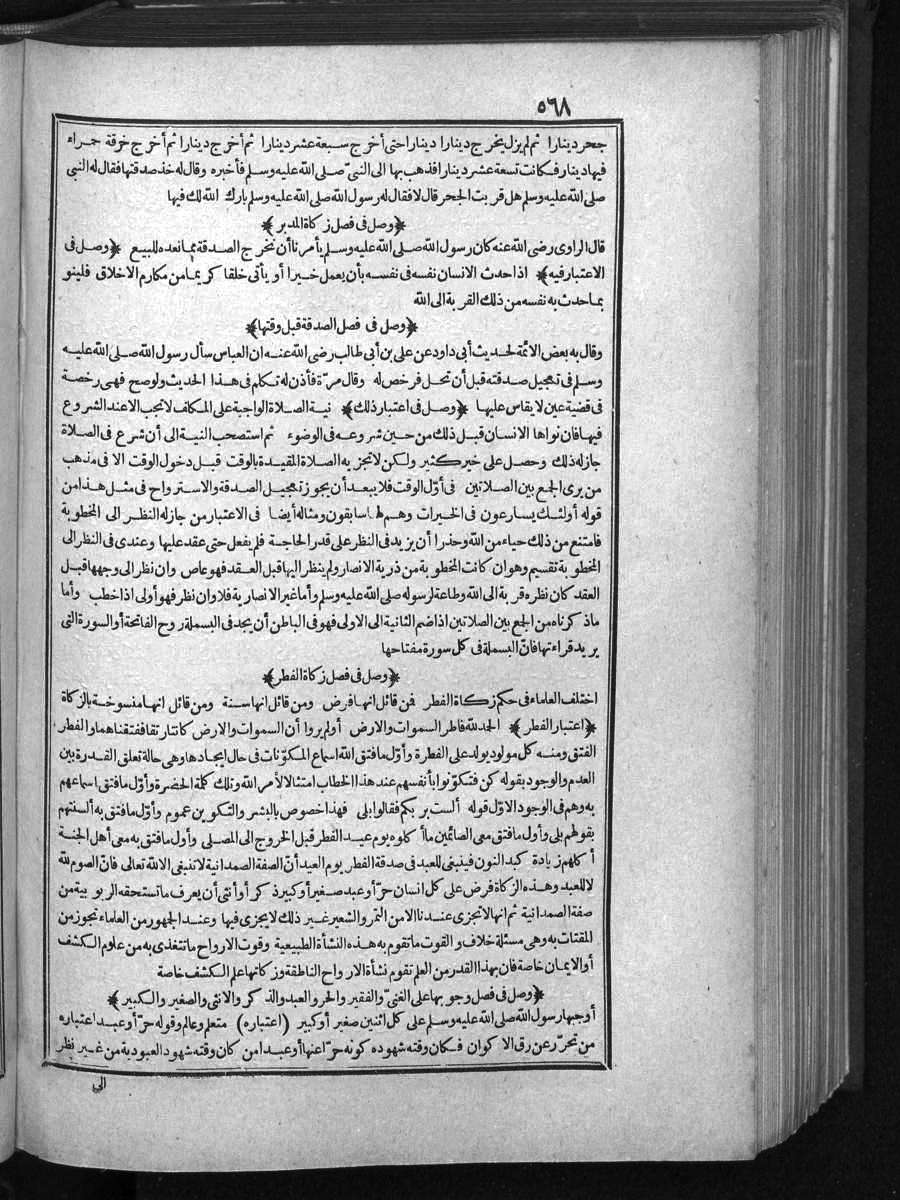 ٥٦٨
جحر دينارا ثم لم يزل يخرج دينارا دينارا حتى أخرج سبعة عشر دينارا ثم أخرج دينارا ثم أخرج خرقة حمراء
فيها دينار فكانت تسعة عشر دينارا فذهب بها الى النبىّ صلى الله عليه وسلم فأخبره وقال له خذ صدقتها فقال له النبى
صلى الله عليه وسلم هل قربت الجحر قال لا فقال له رسول الله صلى الله عليه وسلم بارك الله لك فيها
﴿وصل فى فصل زكاة المدبر﴾
قال الراوى رضى الله عنه كان رسول الله صلى الله عليه وسلم يأمرنا أن نخرج الصدقة مما نعده للبيع ﴿وصل فى
الاعتبار فيه﴾ اذا حدث الانسان نفسه فى نفسه بأن يعمل خيرا أو يأتى خلقا كريما من مكارم الاخلاق فلينو
بما حدث به نفسه من ذلك القربة الى الله
﴿وصل فى فصل الصدقة قبل وقتها﴾
وقال به بعض الائمة لحديث أبى داود عن على بن أبى طالب رضى الله عنه ان العباس سأل رسول الله صلى الله عليه
وسلم فى تعجيل صدقته قبل أن تحل فرخص له وقال مرّة فأذن له تكلم فى هذا الحديث ولو صح فهى رخصة
فى قضية عين لا يقاس عليها ﴿وصل فى اعتبار ذلك﴾ نية الصلاة الواجبة على المكلف لا تجب الا عند الشروع
فيها فان نواها الانسان قبل ذلك من حين شروعه فى الوضوء ثم استصحب النية الى أن شرع فى الصلاة
جاز له ذلك وحصل على خير كثير ولكن لا تجزيه الصلاة المقيدة بالوقت قبل دخول الوقت الا فى مذهب
من يرى الجمع بين الصلاتين فى أوّل الوقت فلا يبعد أن يجوز تعجيل الصدقة والاسترواح فى مثل هذا من
قوله أولئك يسارعون فى الخيرات وهم لها سابقون ومثاله أيضا فى الاعتبار من جاز له النظر الى المخطوبة
فامتنع من ذلك حياء من الله وحذرا أن يزيد فى النظر على قدر الحاجة فلم يفعل حتى عقد عليها وعندى فى النظر الى
المخطوبة تقسيم وهو ان كانت المخطوبة من ذرية الانصار ولم ينظر اليها قبل العقد فهو عاص وان نظر الى وجهها قبل
العقد كان نظره قربة الى الله وطاعة لرسوله صلى الله عليه وسلم وأما غير الانصارية فلا وان نظر فهو أولى اذا خطب وأما
ما ذكرناه من الجمع بين الصلاتين اذا ضم الثانية الى الاولى فهو فى الباطن أن يجد فى البسملة روح الفاتحة أو السورة التى
يريد قراءتها فانّ البسملة فى كل سورة مفتاحها
﴿وصل فى فصل زكاة الفطر﴾
اختلف العلماء فى حكم زكاة الفطر فمن قائل انها فرض ومن قائل انها سنة ومن قائل انها منسوخة بالزكاة
﴿اعتبار الفطر﴾ الحمد لله فاطر السموات والارض أولم يروا أن السموات والارض كانتا رتقا ففتقناهما والفطر
الفتق ومنه كل مولود يولد على الفطرة وأوّل ما فتق الله اسماع المكوّنات فى حال ايجادها وهى حالة تعلق القدرة بين
العدم والوجود بقوله كن فتكوّنوا بأنفسهم عند هذا الخطاب امتثالا لأمر الله وتلك كلمة الحضرة وأوّل ما فتق اسماعهم
به وهم فى الوجود الاوّل قوله ألست بربكم فقالوا بلى فهذا خصوص بالبشر والتكوين عموم وأوّل ما فتق به ألسنتهم
بقولهم بلى وأول ما فتق معى الصائمين ما أكلوه يوم عيد الفطر قبل الخروج الى المصلى وأول ما فتق به معى أهل الجنة
أكلهم زيادة كبد النون فينبغى للعبد فى صدقة الفطر يوم العيد أنّ الصفة الصمدانية لا تنبغى الا لله تعالى فانّ الصوم لله
لا للعبد وهذه الزكاة فرض على كل انسان حرّ أو عبد صغير أو كبير ذكر أو أنثى أن يعرف ما تستحقه الربوبية من
صفة الصمدانية ثم انها لا تجزى عندنا الا من التمر والشعير غير ذلك لا يجزى فيها وعند الجمهور من العلماء تجوز من
المقتات به وهى مسئلة خلاف والقوت ما تقوم به هذه النشأة الطبيعية وقوت الارواح ما تتغذى به من علوم الكشف
أو الايمان خاصة فان بهذا القدر من العلم تقوم نشأة الارواح الناطقة وزكاتها علم الكشف خاصة
﴿وصل فى فصل وجوبها على الغنىّ والفقير والحر والعبد والذكر والانثى والصغير والكبير﴾
أوجبها رسول الله صلى الله عليه وسلم على كل اثنين صغير أو كبير (اعتباره) متعلم وعالم وقوله حرّ أو عبد اعتباره
من تحرّر عن رق الاكوان فكان وقته شهوده كونه حرّا عنها أو عبدا من كان وقته شهود العبودية من غير نظر
الى